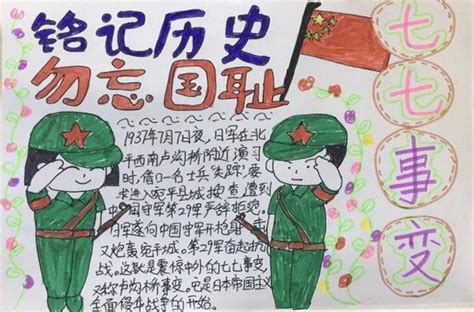 铭记历史
勿忘国耻
1937年7月7日夜,日军在北
平西南卢沟桥附近演习
时,借口一名士兵"失踪",要
求进入宛平县城搜查,遭到
中国守军第29军严辞拒绝。
日军遂向中国守军开枪射
又炮轰宛平城。第29军奋起抗
战。这就是震惊中外的七七事变,
又称卢沟桥事变。它是日本帝国主义
全面侵华战争的开始。
七七事变